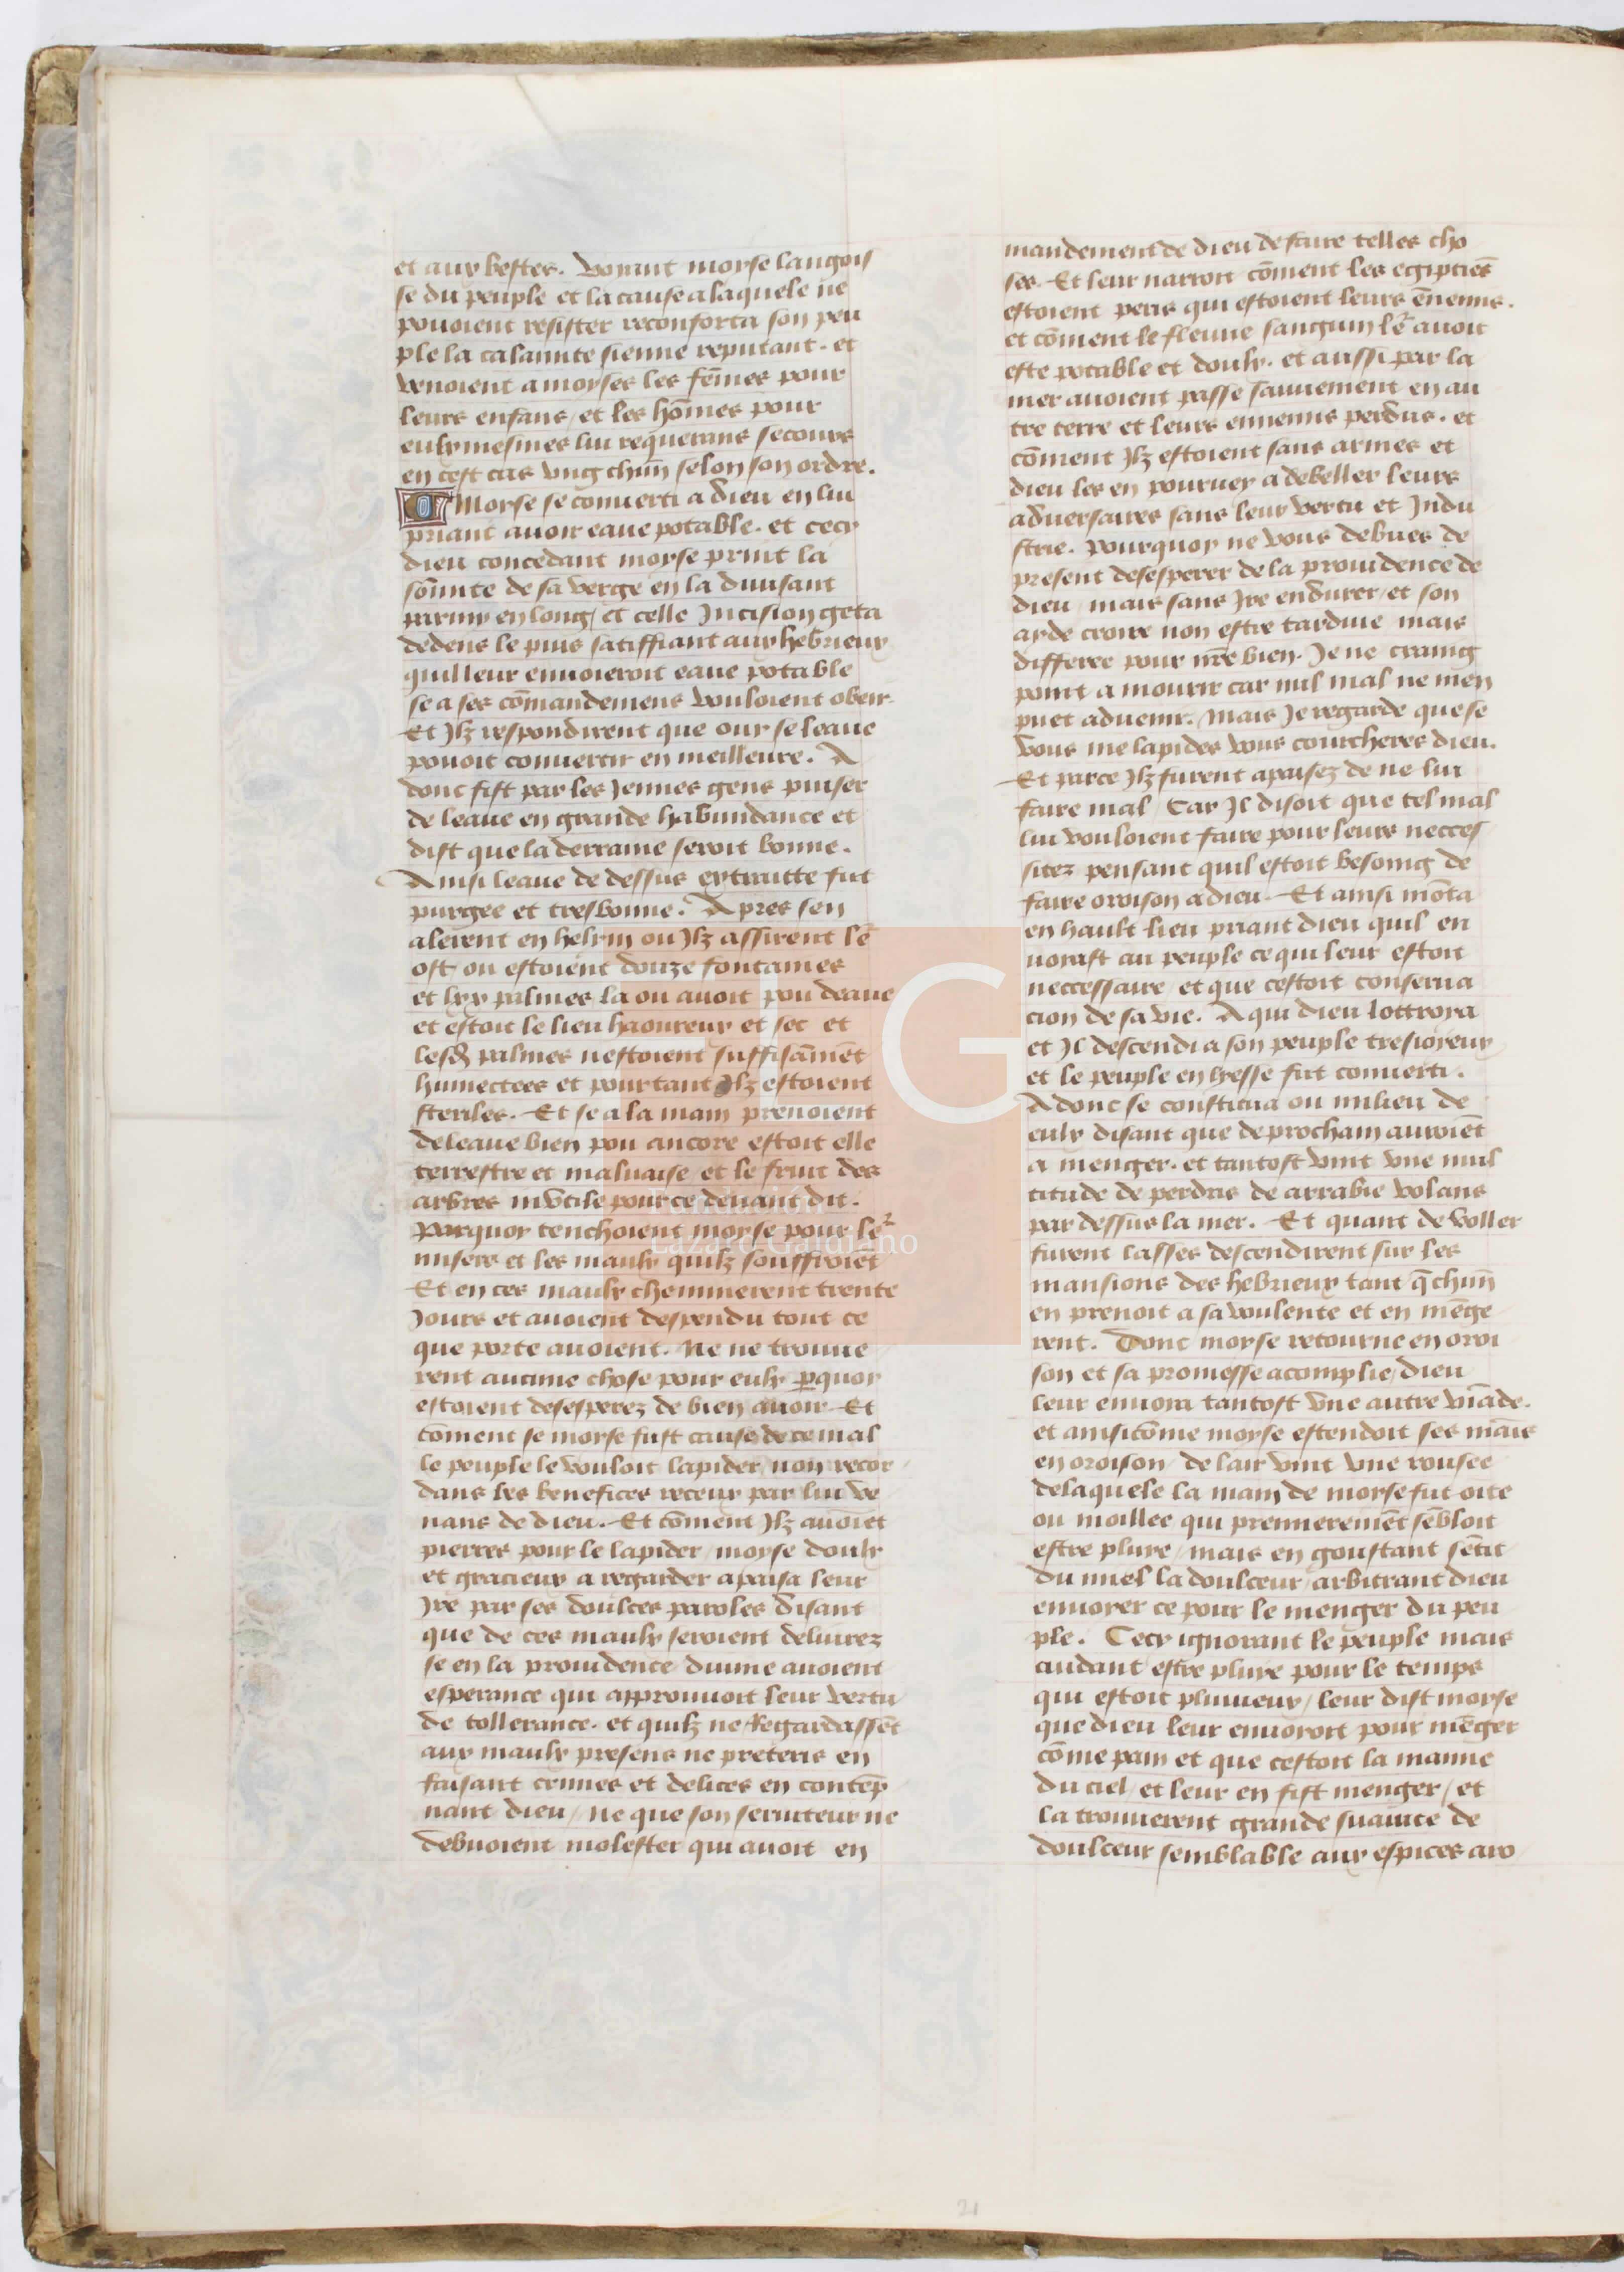 et aux bestes. Voyant moyse langois
se du peuple et la cause a laquele ne
pouoient resister reconforta son peu
ple la calamite sienne reputant. et
venoient a moyses les fēmes pour
leurs enfans / et les hōmes pour
eulx mesmes lui requerans secours
en cest cas vng chūn selon son ordre.
Moyse se conuerti a dieu en lui
priant auoir eaue potable. et cecy
dieu concedant moyse print la
sōmite de sa verge en la diuisant
parmy en long / et celle Incision geta
dedens le puis satiffiant aux hebrieux
quil leur enuoieroit eaue potable
se a ses cōmandemens vouloient obeir.
Et Jlz respondirent que ouy se leaue
pouoit conuertir en meilleure. A
donc fist par les Jennes gens puiser
de leaue en grande habundance et
dist que la derraine seroit bonne.
Ainsi leaue de dessus extraitte fut
purgee et tresbonne. Apres sen
alerent en helym ou Jlz assirent lē
ost ou estoient douze fontaines
et lxx palmes la ou auoit pou deaue
et estoit le lieu haoureux et sec et
lesd palmes nestoient suffisāmēt
humectees et pourtant Jlz estoient
steriles. Et se a la main prenoient
de leaue bien pou ancore estoit elle
terrestre et maluaise et le fruit des
arbres inutile pour ce deuant dit.
Parquoy tenchoient moyse pour lē
misere et les maulx quilz souffroiēt
Et en ces maulx cheminerent trente
Jours et auoient despendu tout ce
que porte auoient. Ne ne trouue
rent aucune chose pour eulx p̄quoy
estoient desesperez de bien auoir. Et
cōment se moyse fust cause de ce mal
le peuple le vouloit lapider / non recor
dans les benefices receux par lui ve
nans de dieu. Et cōment Jlz auoiēt
pierres pour le lapider / moyse doulx
et gracieux a regarder apaisa leur
Jre par ses doulces paroles disant
que de ces maulx seroient deliurez
se en la prouidence diuine auoient
esperance qui approuuoit leur vertu
de tollerance. et quilz ne Regardassēt
aux maulx presens ne preteris en
faisant crimes et delices en contēp
nant dieu / ne que son seruiteur ne
debuoient molester qui auoit en
mandement de dieu de faire telles cho
ses. Et leur narroit cōment les egiptiēs
estoient peris qui estoient leurs ēnemis.
et cōment le fleuue sanguin lē auoit
este potable et doulx. et aussi par la
mer auoient passe sauuement en au
tre terre et leurs ennemis perdus. et
cōment Jlz estoient sans armes et
dieu les en pouruey a debeller leurs
aduersaires sans leur vertu et Indu
strie. Pourquoy ne vous debues de
present desesperer de la prouidence de
dieu / mais sans Jre endurer / et son
ayde croire non estre tardiue mais
differee pour nr̄e bien. Je ne craing
point a mourir car nul mal ne men
puet aduenir. Mais Je regarde que se
vous me lapides vous courcheres dieu.
Et parce Jlz furent apaisez de ne lui
faire mal / Car Jl disoit que tel mal
lui vouloient faire pour leurs necces
sitez pensant quil estoit besoing de
faire oroison a dieu. Et ainsi mōta
en hault lieu priant dieu quil en
uoiast au peuple ce qui leur estoit
neccessaire / et que cestoit conserua
cion de sa vie. A qui dieu lottroya
et Jl descendi a son peuple tresioyeux
et le peuple en lyesse fut conuerti.
Adonc se constitua ou milieu de
eulx disant que de prochain auroiēt
a menger. et tantost vint vne mul
titude de perdris de arrabie volans
par dessus la mer. Et quant de voller
furent lasses descendirent sur les
mansions des hebrieux tant q̄ chūn
en prenoit a sa voulente et en mēge
rent. Donc moyse retourne en oroi
son et sa promesse acomplie / dieu
leur enuoya tantost vne autre viāde.
et ainsi cōme moyse estendoit ses mais
en oroison / de lair vint vne rousee
de laquele la main de moyse fut oite
ou moillee qui premieremēt sēbloit
estre pluye / mais en goustant sētit
du miel la doulceur / arbitrant dieu
enuoyer ce pour le menger du peu
ple. Cecy ignorant le peuple mais
cuidant estre pluye pour le temps
qui estoit pluuieux / leur dist moyse
que dieu leur enuoyoit pour mēger
cōme pain et que cestoit la manne
du ciel / et leur en fist menger / et
la trouuerent grande suauite de
doulceur semblable aux espices aro
FLG
Fundación
Lázaro Galdiano
21